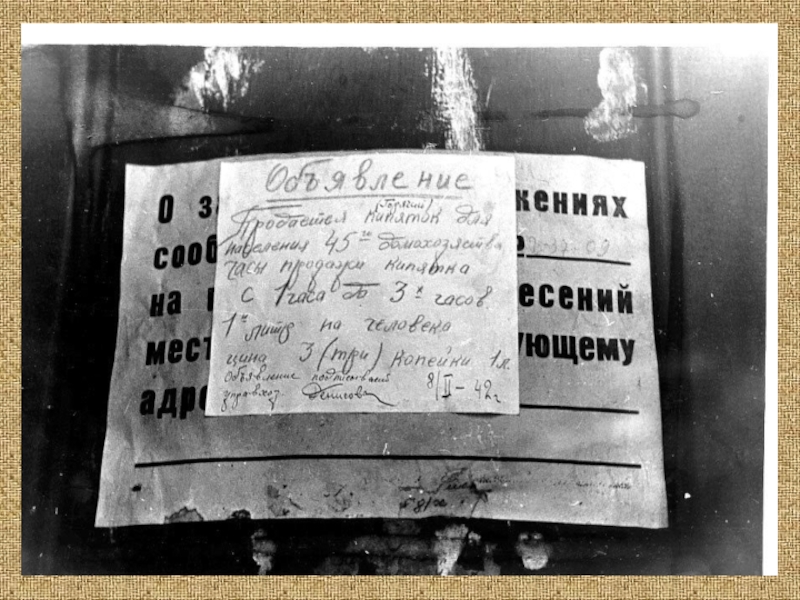 Объявление
(горячий)
Продается кипяток для
населения 45го домохозяйства
часы продажи кипятка
с 1 часа до 3х часов
1н литр на человека
цина 3 (три) копейки 1 л.
Объявление подписавший
управхоз Денисова 8/II – 42 г
О за жениях
сооб
на есений
мест ующему
адре